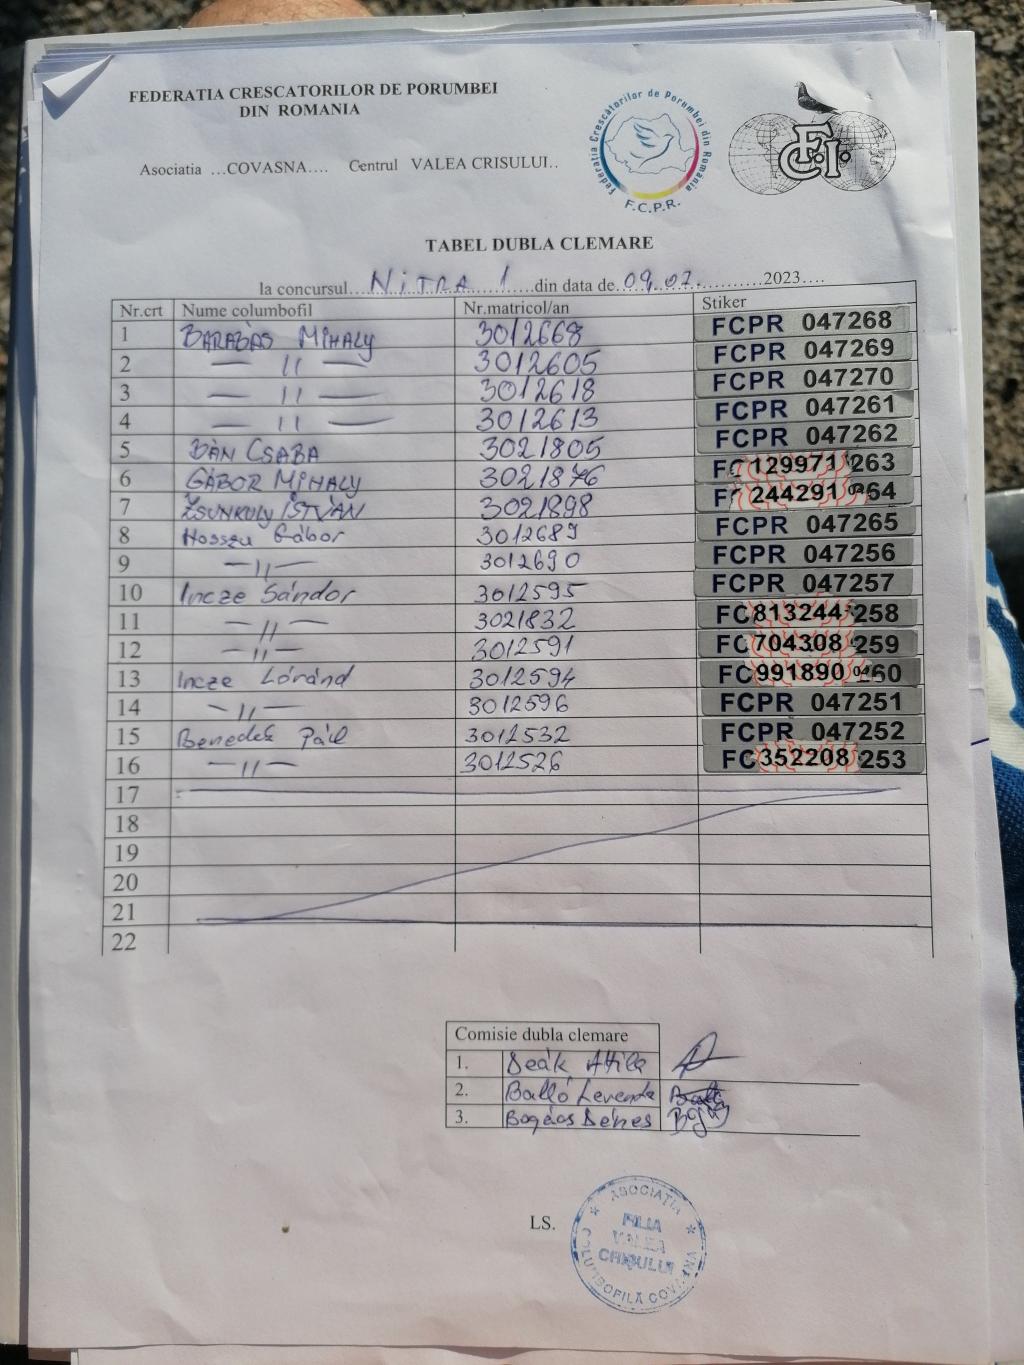 FEDERATIA CRESCATORILOR DE PORUMBEI
DIN ROMANIA
Federatia Crescătorilor de Porumbei din România
F.C.P.R.
F.C.I.
Asociatia ...COVASNA.... Centrul VALEA CRISULUI..
TABEL DUBLA CLEMARE
la concursul...NITRA 1...din data de 09.07...2023....
Nr.crt Nume columbofil Nr.matricol/an Stiker
1 BARABÀS MIHALY 3012668 FCPR 047268
2 — 11 — 3012605 FCPR 047269
3 — 11 — 3012618 FCPR 047270
4 — 11 — 3012613 FCPR 047261
5 BÀN CSABA 3021805 FCPR 047262
6 GÁBOR MIHALY 3021876 FC 129971 263
7 ISTVÀN 3021898 F 244291 264
8 Hosszu Gábor 3012689 FCPR 047265
9 — 11 — 3012690 FCPR 047256
10 Incze Sándor 3012595 FCPR 047257
11 — 11 — 3021832 FC 813244 258
12 — 11 — 3012591 FC 704308 259
13 Incze Lóránd 3012594 FC 991890 260
14 — 11 — 3012596 FCPR 047251
15 Benedek Pál 3012532 FCPR 047252
16 — 11 — 3012526 FC 352208 253
17
18
19
20
21
22
Comisie dubla clemare
1. Deák Attila
2. Balló Levente
3. Bogdos Dénes
LS.
ASOCIAŢIA COLUMBOFILĂ COVASNA
FILIA
VALEA
CRIŞULUI